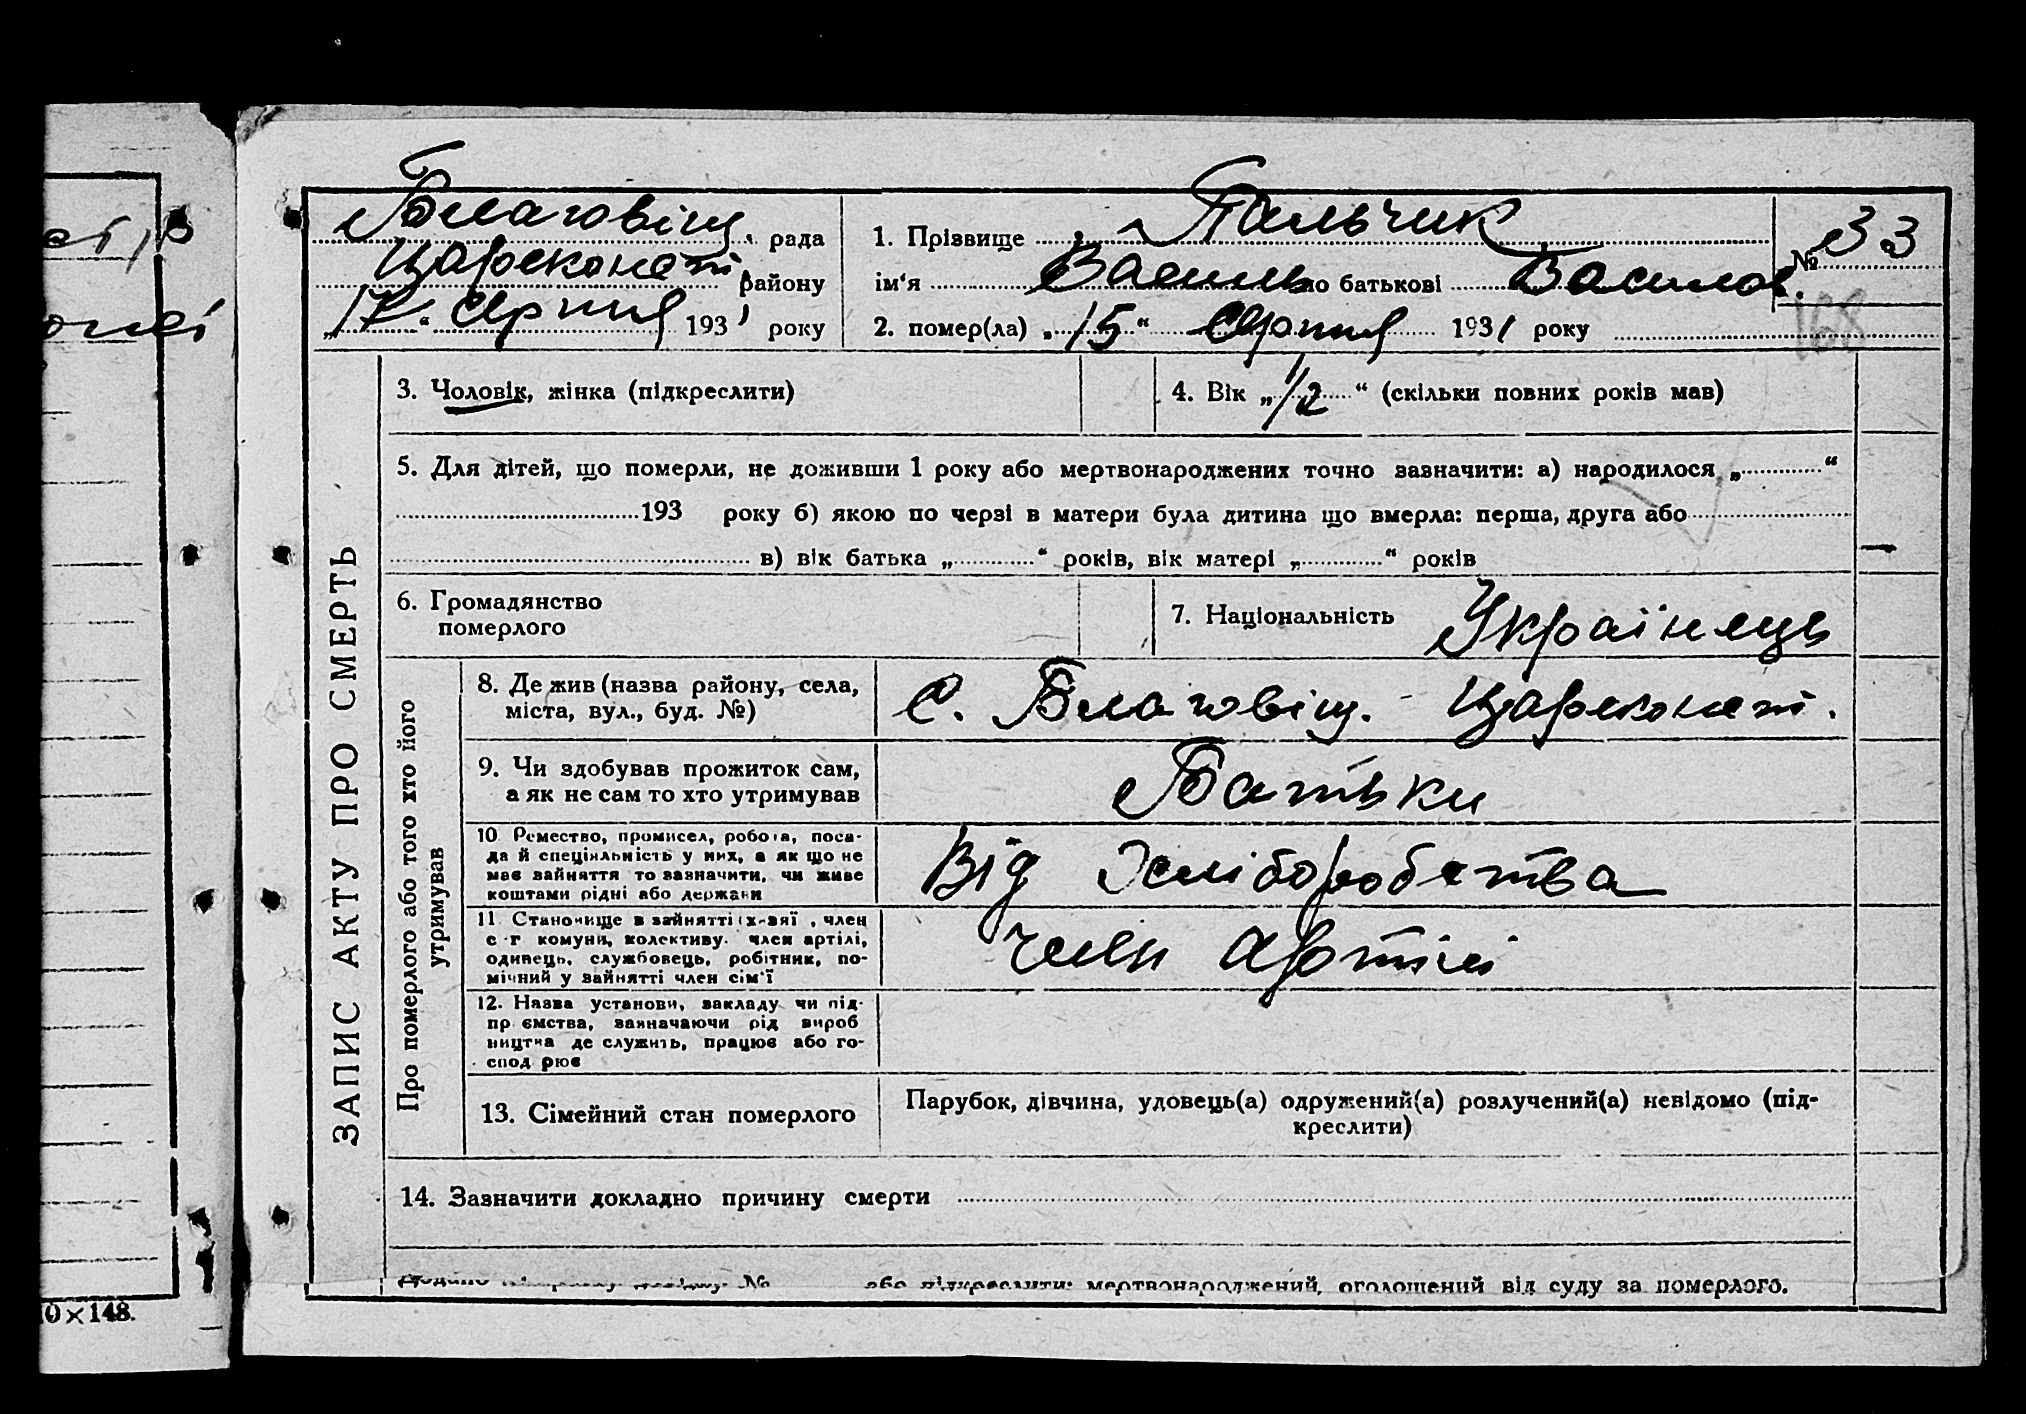 Благовіщ. рада
Цареконст. району
„17“ Серпня 1931 року
1. Прізвище Пальчик
ім‘я Василь по батькові Василов.
№ 33
168
2. помер(ла) „15“ Серпня 1931 року
ЗАПИС АКТУ ПРО СМЕРТЬ
3. Чоловік, жінка (підкреслити)
4. Вік „1/2“ (скільки повних років мав)
5. Для дітей, що померли, не доживши 1 року або мертвонароджених точно зазначити: а) народилося „ “
193 року б) якою по черзі в матери була дитина що вмерла: перша, друга або
в) вік батька „ “ років, вік матері „ “ років
6. Громадянство
померлого
7. Національність Українець
Про померлого або того хто його
утримував
8. Де жив (назва району, села,
міста, вул., буд. №)
С. Благовіщ. Цареконст.
9. Чи здобував прожиток сам,
а як не сам то хто утримував
Батьки
10. Ремество, промисел, робота, поса-
да й спеціяльність у них, а як що не
має зайняття то зазначити, чи живе
коштами рідні або держави
Від Хліборобства
11. Становище в зайнятті член
с-г комуни, колективу. член артілі,
одинець, службовець, робітник, по-
мічний у зайнятті член сім‘ї
член Артілі
12. Назва установи, закладу чи під-
приємства, зазначаючи рід вироб
ництва де служить, працює або го-
сподарює
13. Сімейний стан померлого
Парубок, дівчина, удовець(а) одружений(а) розлучений(а) невідомо (під-
креслити)
14. Зазначити докладно причину смерти
№ або підкреслити: мертвонароджений, оголошений від суду за померлого.
0×148.